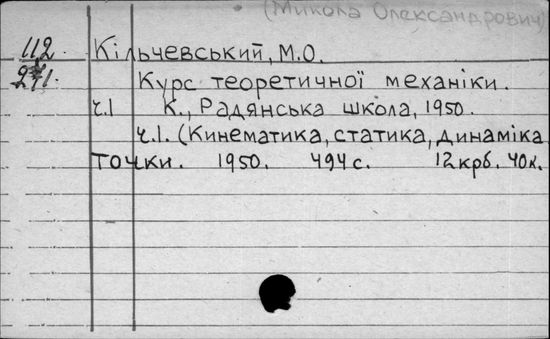 (Микола Олександрович)
112 Кільчевський, М.О.
271. Курс теоретичної механіки.
ч.1 К., Радянська школа, 1950.
ч.1. (Кинематика, статика, динаміка
точки. 1950. 494 с. 12 крб. 40 к.